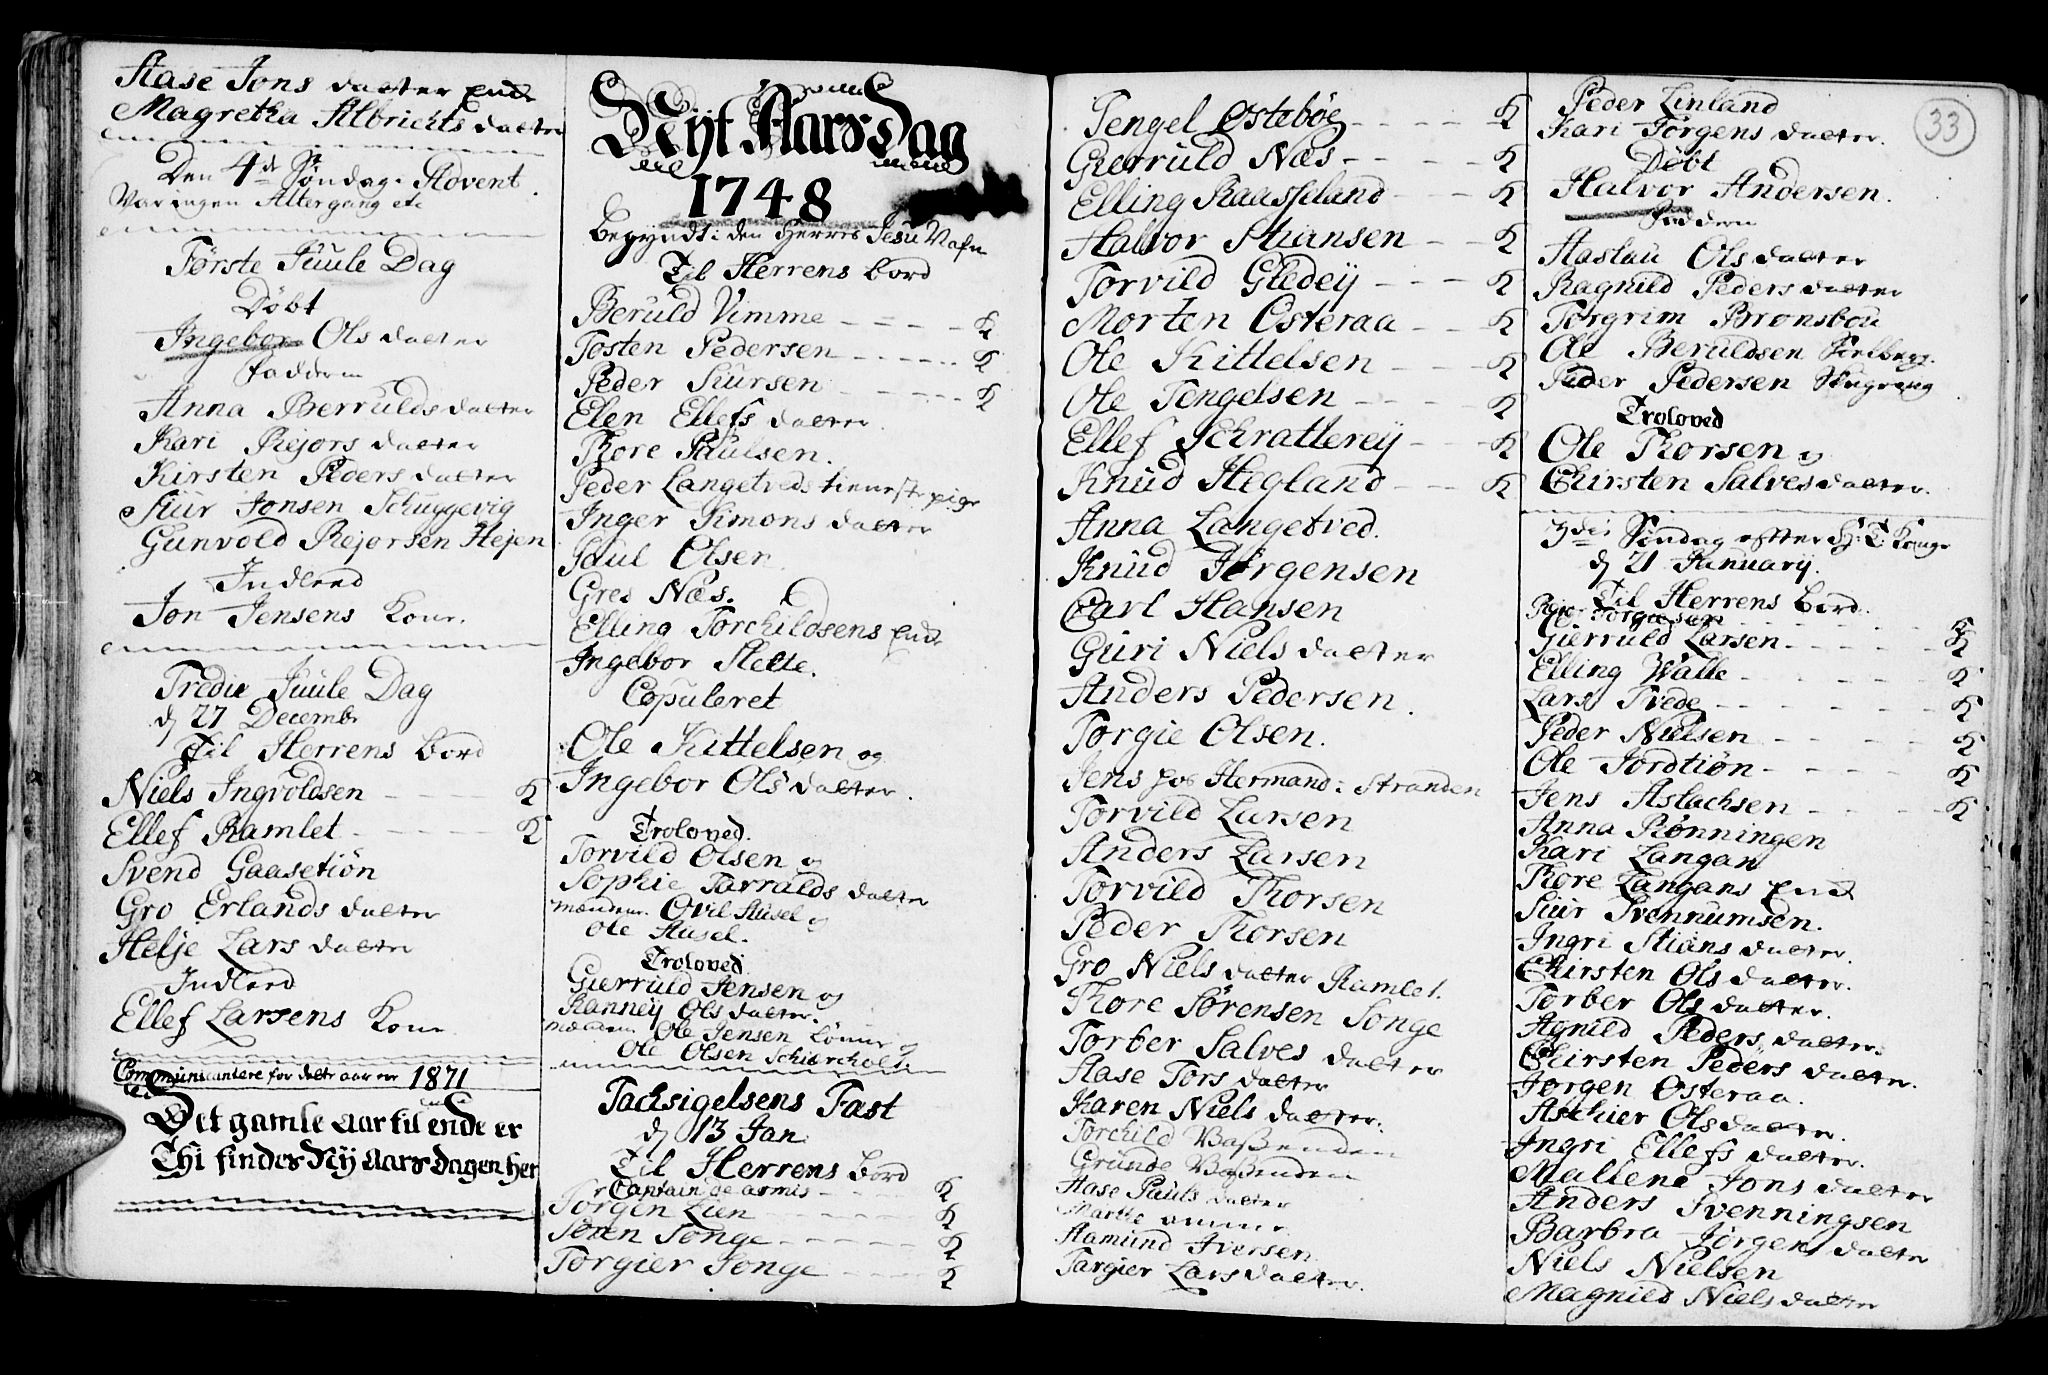 Aase Jons datter Ende
Magretha Albrichts datter
Den 4de Søndag Advent.
Var ingen Altergang etc
Første Juule Dag
Døbt
Ingebor Ols datter
Faddere
Anna Berrulds datter
Kari Rejers datter
Kirsten Peders datter
Siur Jonsen Schuggevig
Gunvold Rejersen Hejen
Indleed
Jon Jensens Kone.
Tredie Juule Dag
d 27 Decembr
Til Herrens bord
Niels Ingvoldsen - - - - K
Ellef Ramlet - - - - - K
Svend Gaasetiøn
Gro Erlands datter
Helje Lars datter
Indleed
Ellef Larsens Kone.
Communicantere for dette aar er 1871
Det gamle Aar til ende er
Thi findes Nÿ Aars dagen her
Nÿt Aars Dag
1748
begyndt i den Herres Jesu Nafn
Til Herrens bord
Beruld Vimme - - - - - K
Tosten Pedersen - - - - - K
Peder Siursen - - - - - K
Elen Ellefs datter.
Thore Paulsen.
Peder Langetveds tieneste pige
Inger Simons datter
Paul Olsen
Gres Næs.
Elling Torchildsens Ende
Ingebor Slette.
Copuleret
Ole Kittelsen og
Ingebor Ols datter.
Troloved.
Torvild Olsen og
Sophie Tarralds datter
mændene. Ovil Ausel og
Ole Ausel.
Troloved
Gierruld Jensen og
Ranneÿ Ols datter.
mændene Ole Jensen Lønne og
Ole Olsen Schiærcholt
Tachsigelsens Fast
d 13 Jan:
Til Herrens bord
Captain de armis - - K
Jørgen Lien - - - - - K
Søren Songe - - - - - K
Torgier Songe - - - - K
33
Tengel Østebøe - - - - K
Gierruld Næs - - - - - K
Elling Raasseland - - - K
Halvor Stiansen - - K
Torvild Gledeÿ - - - K
Morten Osteraa - - - K
Ole Kittelsen - - - - K
Ole Tengelsen - - - - K
Ellef Schrattereÿ - - - K
Knud Hegland - - - K
Anna Langetved.
Knud Jørgensen
Carl Hansen
Guri Niels datter
Anders Pedersen.
Torgie Olsen.
Jens hos Hermand i Stranden
Torvild Larsen
Anders Larsen
Torvild Thorsen
Peder Thorsen
Gro Niels datter Ramlet.
Thore Sørensen Songe
Torber Salves datter
Aase Tors datter
Karen Niels datter.
Torchild Vaßenden
Grunde Vaßenden
Aase Pauls datter
Marthe
Aamund Iversen
Targier Lars datter.
Peder Linland
Kari Jørgens datter.
Døbt
Halvor Andersen.
Faddere
Aaslau Ols datter
Ragnild Peders datter
Torgrim Brønsbou
Ole Beruldsen
Peder Pedersen
Troloved
Ole Thorsen og
Chirsten Salves datter.
3de Søndag efter H: T: Konge
d 21 Januarÿ.
Til Herrens bord.
Gierruld Larsen - - - - - K
Elling Walle - - - - - K
Lars Tvede - - - - - K
Peder Nielsen - - - - K
Ole Jordtiøn - - - - - K
Jens Aslachsen - - - - K
Anna Rønningen
Kari Langan
Thore Langans Ende
Siur Svennumsen.
Ingri Stians datter.
Chirsten Ols datter.
Torber Ols datter.
Agnild Peders datter.
Chirsten Peders datter.
Jørgen Osteraa.
Aschier Ols datter.
Ingri Ellefs datter.
Mallene Jons datter
Anders Svenningsen
Barbra Jørgens datter
Niels Nielsen
Magnild Niels datter